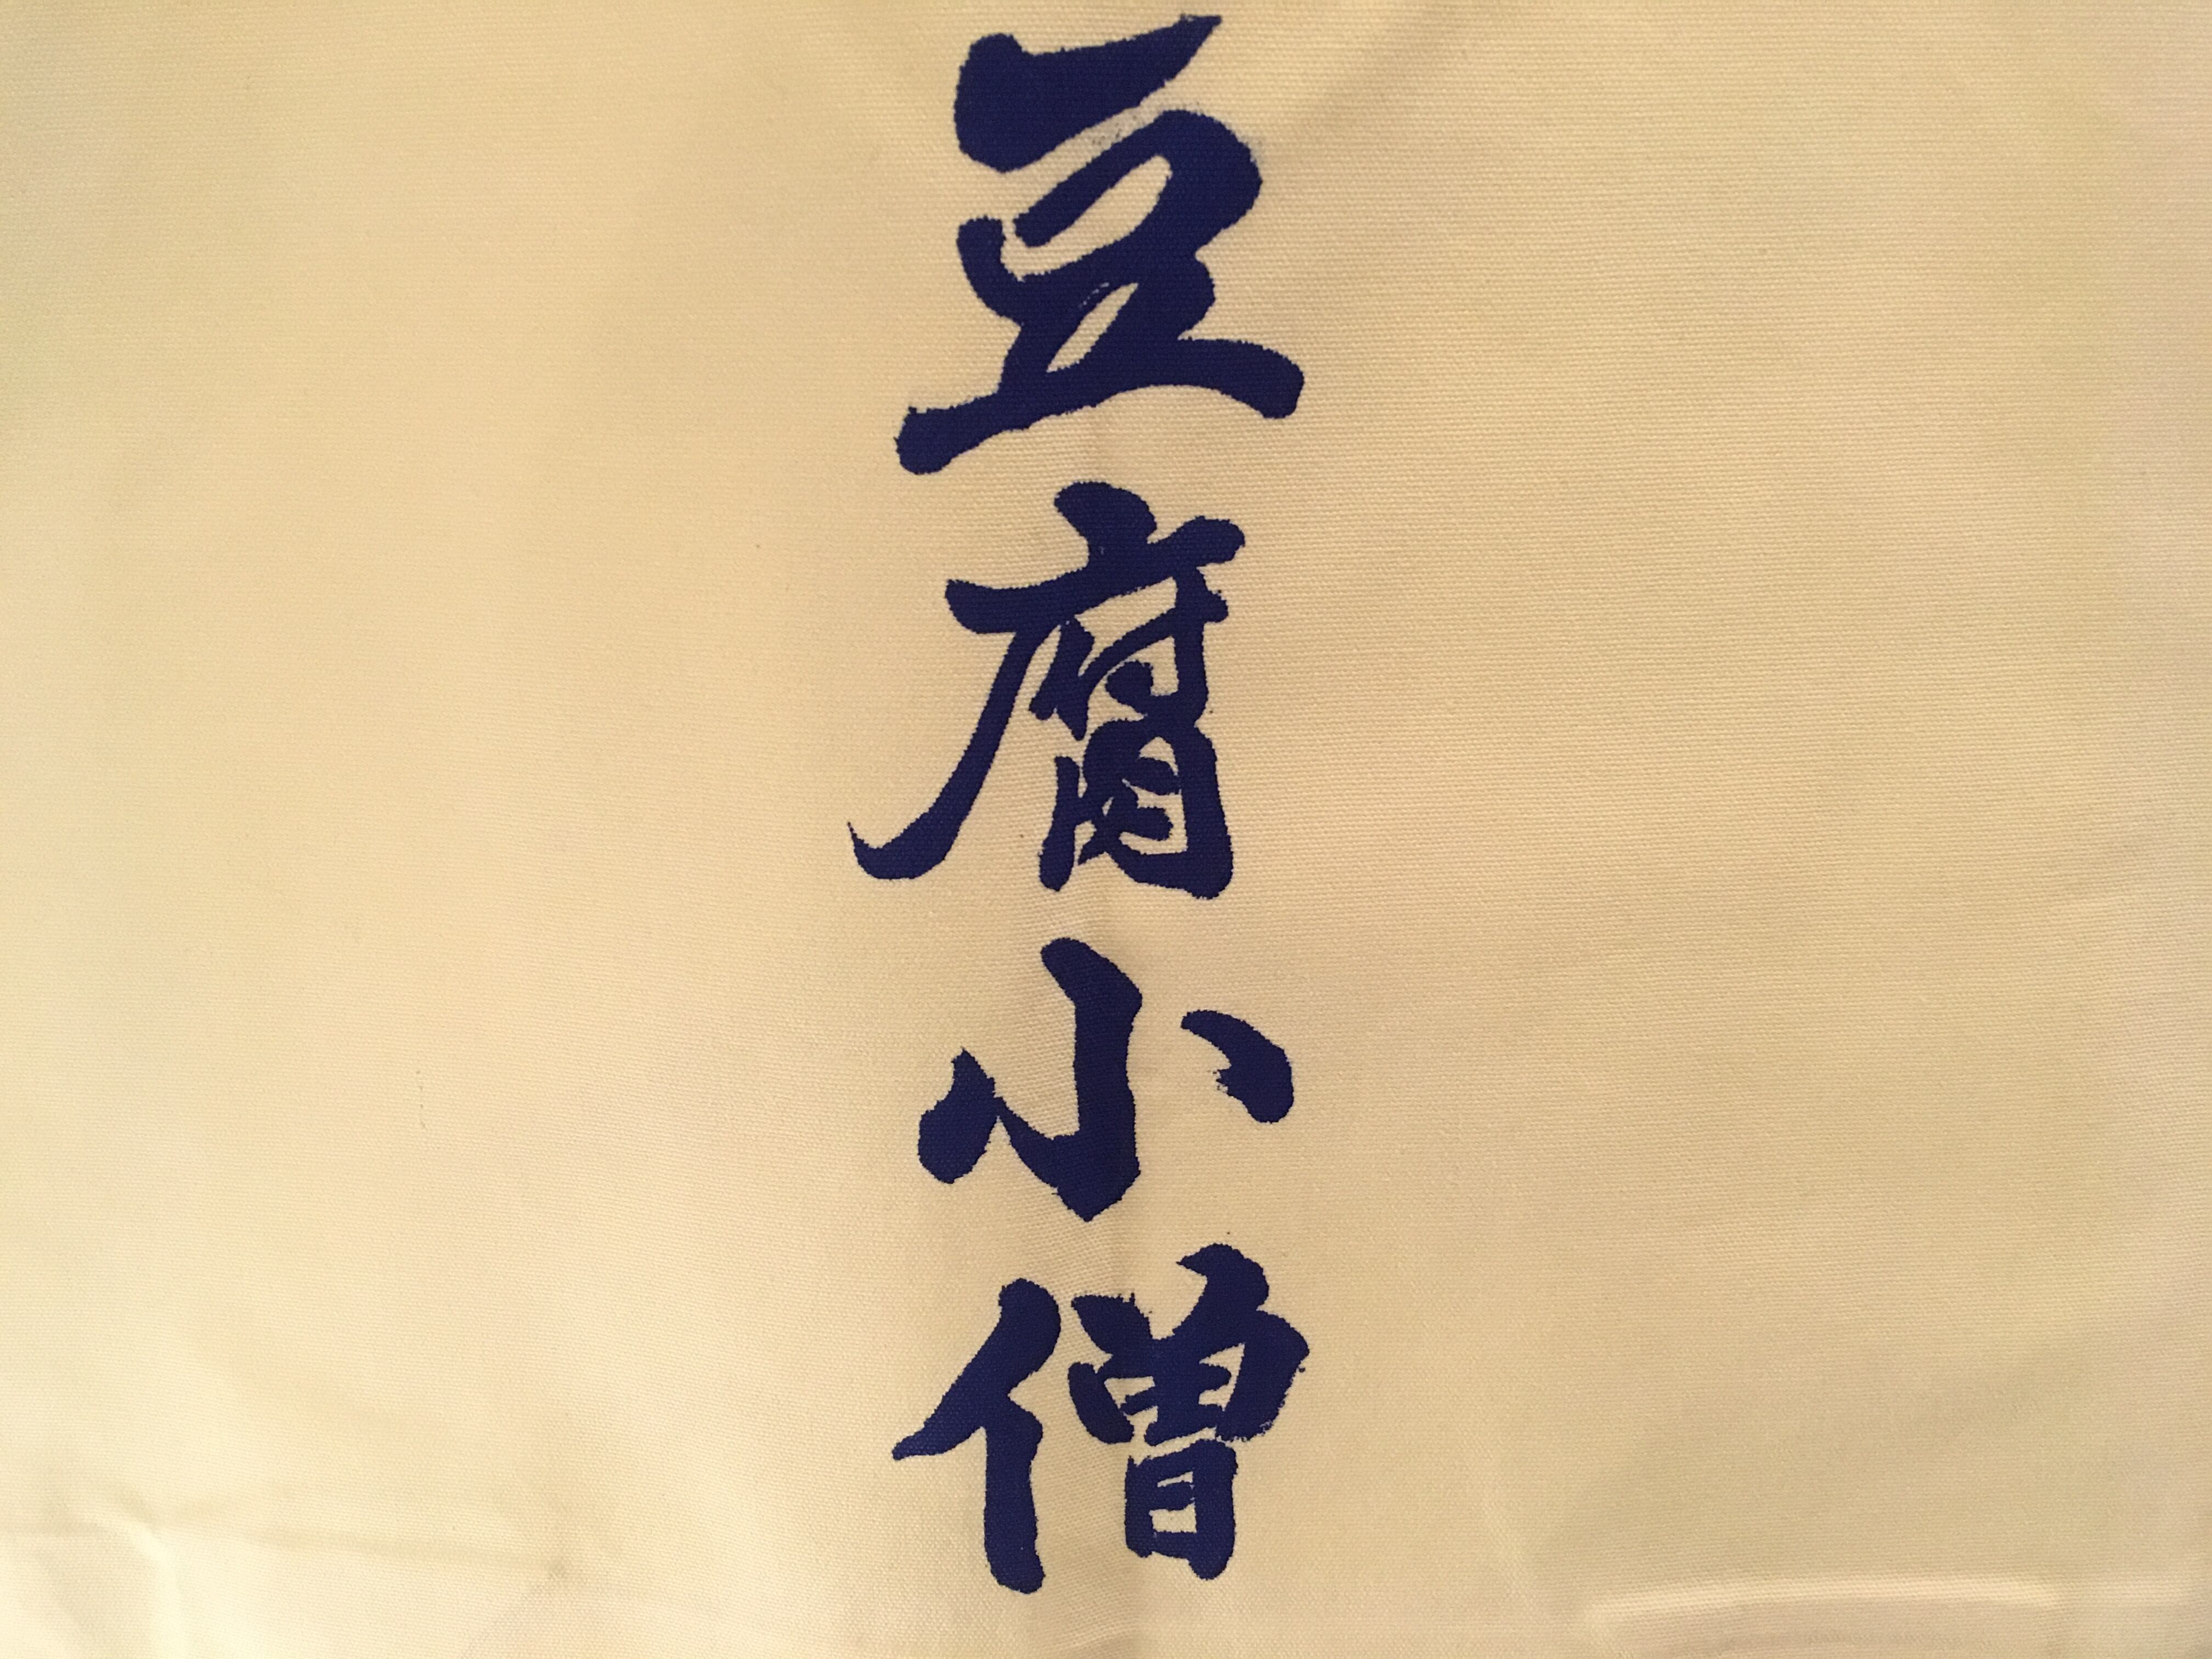 豆腐小僧